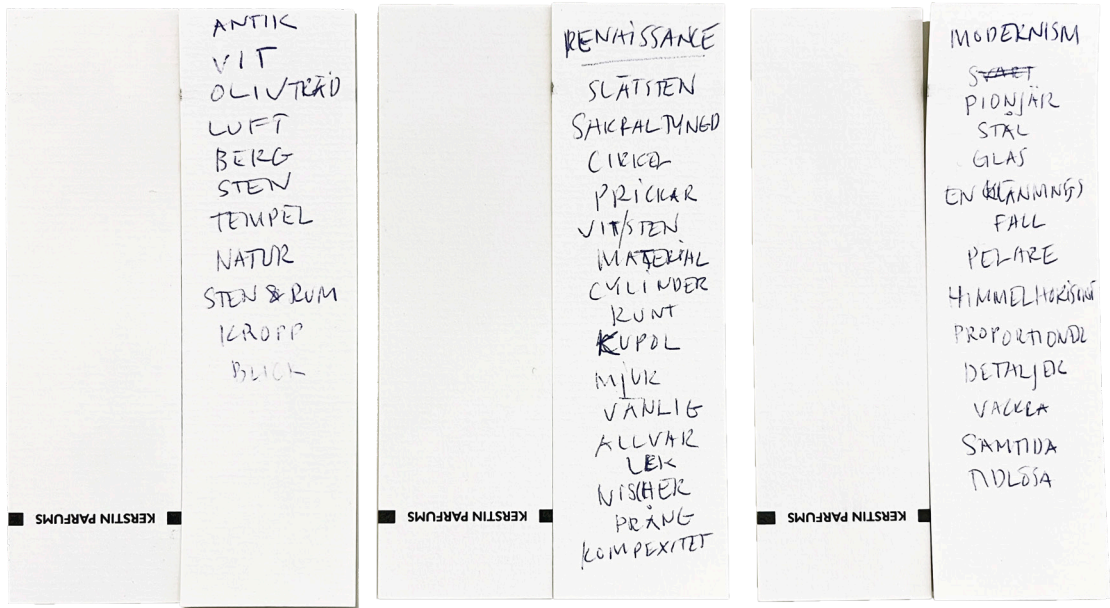 ANTIK
VIT
OLIVTRÄD
LUFT
BERG
STEN
TEMPEL
NATUR
STEN & RUM
KROPP
BLICK
KERSTIN PARFUMS
RENAISSANCE
SLÄTSTEN
SAKRALTYNGD
CIRKEL
PRICKAR
VIT/STEN
MATERIAL
CYLINDER
RUNT
KUPOL
MJUK
VÄNLIG
ALLVAR
LEK
NISCHER
PRÅNG
KOMPEXITET
KERSTIN PARFUMS
MODERNISM
SVART
PIONJÄR
STÅL
GLAS
EN KLÄNNINGS
FALL
PELARE
HIMMELHORISONT
PROPORTIONER
DETALJER
VACKRA
SAMTIDA
TIDLÖSA
KERSTIN PARFUMS